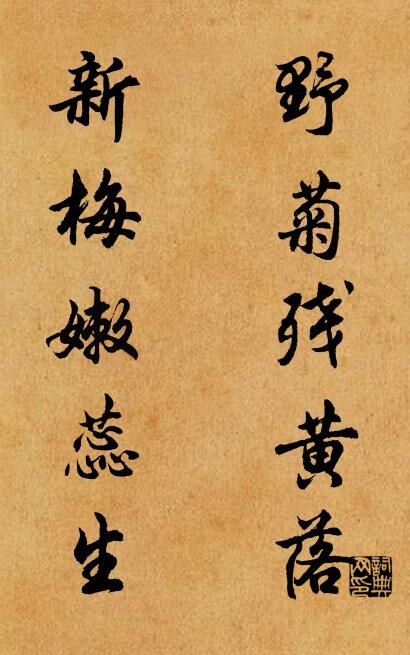 野菊残黄落
新梅嫩蕊生
詞典网印